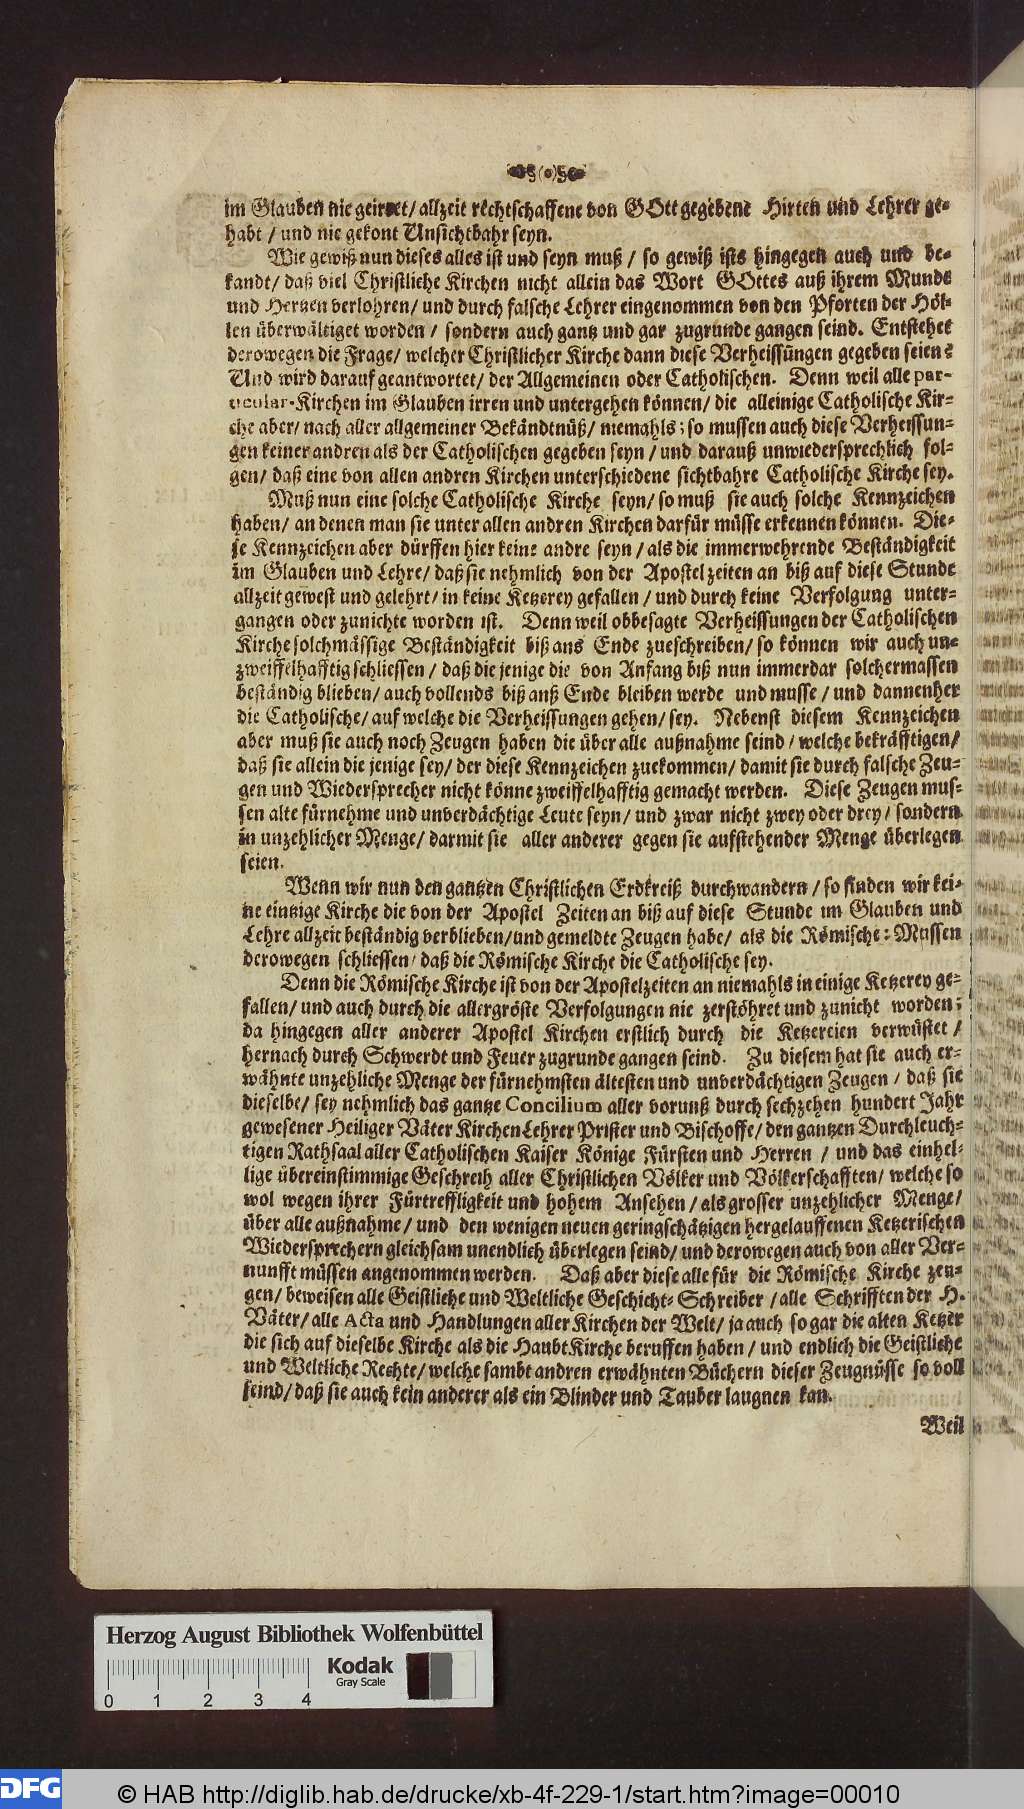 im Glauben nie geirret/ allzeit rechtschaffene von GOtt gegebene Hirten und Lehrer ge-
habt / und nie gekont Unsichtbahr seyn.
Wie gewiß nun dieses alles ist und seyn muß / so gewiß ists hingegen auch und be-
kandt/ daß viel Christliche Kirchen nicht allein das Wort GOttes auß ihrem Munde
und Hertzen verlohren/ und durch falsche Lehrer eingenommen von den Pforten der Höl-
len überwältiget worden / sondern auch gantz und gar zugrunde gangen seind. Entstehet
derowegen die Frage/ welcher Christlicher Kirche dann diese Verheissungen gegeben seien?
Und wird darauf geantwortet/ der Allgemeinen oder Catholischen. Denn weil alle par-
ticular-Kirchen im Glauben irren und untergehen können/ die alleinige Catholische Kir-
che aber/ nach aller allgemeiner Bekändtnüß/ niemahls; so mussen auch diese Verheissun-
gen keiner andren als der Catholischen gegeben seyn / und darauß unwiedersprechlich fol-
gen/ daß eine von allen andren Kirchen unterschiedene sichtbahre Catholische Kirche sey.
Muß nun eine solche Catholische Kirche seyn/ so muß sie auch solche Kennzeichen
haben/ an denen man sie unter allen andren Kirchen darfür müsse erkennen können. Die-
se Kennzeichen aber dürffen hier keine andre seyn / als die immerwehrende Beständigkeit
im Glauben und Lehre/ daß sie nehmlich von der Apostel zeiten an biß auf diese Stunde
allzeit gewest und gelehrt/ in keine Ketzerey gefallen / und durch keine Verfolgung unter-
gangen oder zunichte worden ist. Denn weil obbesagte Verheissungen der Catholischen
Kirche solchmässige Beständigkeit biß ans Ende zueschreiben/ so können wir auch un-
zweiffelhafftig schliessen / daß die jenige die von Anfang biß nun immerdar solchermassen
beständig blieben/ auch vollends biß anß Ende bleiben werde und musse / und dannenher
die Catholische/ auf welche die Verheissungen gehen/ sey. Nebenst diesem Kennzeichen
aber muß sie auch noch Zeugen haben die über alle außnahme seind / welche bekräfftigen/
daß sie allein die jenige sey/ der diese Kennzeichen zuekommen/ damit sie durch falsche Zeu-
gen und Wiedersprecher nicht könne zweiffelhafftig gemacht werden. Diese Zeugen mus-
sen alte fürnehme und unverdächtige Leute seyn/ und zwar nicht zwey oder drey / sondern
in unzehlicher Menge/ darmit sie aller anderer gegen sie aufstehender Menge überlegen
seien.
Wenn wir nun den gantzen Christlichen Erdkreiß durchwandern / so finden wir kei-
ne eintzige Kirche die von der Apostel Zeiten an biß auf diese Stunde im Glauben und
Lehre allzeit beständig verblieben/und gemeldte Zeugen habe/ als die Römische: Mussen
derowegen schliessen/ daß die Römische Kirche die Catholische sey.
Denn die Römische Kirche ist von der Apostelzeiten an niemahls in einige Ketzerey ge-
fallen/ und auch durch die allergröste Verfolgungen nie zerstöhret und zunicht worden;
da hingegen aller anderer Apostel Kirchen erstlich durch die Ketzereien verwüstet /
hernach durch Schwerdt und Feuer zugrunde gangen seind. Zu diesem hat sie auch er-
wähnte unzehliche Menge der fürnehmsten ältesten und unverdächtigen Zeugen / daß sie
dieselbe/ sey nehmlich das gantze Concilium aller vorunß durch sechzehen hundert Jahr
gewesener Heiliger Väter KirchenLehrer Prister und Bischoffe/ den gantzen Durchleuch-
tigen Rathsaal aller Catholischen Kaiser Könige Fürsten und Herren / und das einhel-
lige übereinstimmige Geschreih aller Christlichen Völker und Völkerschafften/ welche so
wol wegen ihrer Fürtreffligkeit und hohem Ansehen / als grosser unzehlicher Menge/
über alle außnahme / und den wenigen neuen geringschätzigen hergelauffenen Ketzerischen
Wiedersprechern gleichsam unendlich überlegen seind/ und derowegen auch von aller Ver-
nunfft müssen angenommen werden. Daß aber diese alle für die Römische Kirche zeu-
gen/ beweisen alle Geistliche und Weltliche Geschicht-Schreiber / alle Schrifften der H.
Väter/ alle Acta und Handlungen aller Kirchen der Welt/ ja auch so gar die alten Ketzer
die sich auf dieselbe Kirche als die HaubtKirche beruffen haben / und endlich die Geistliche
und Weltliche Rechte/ welche sambt andren erwähnten Büchern dieser Zeugnüsse so voll
seind/ daß sie auch kein anderer als ein Blinder und Tauber laugnen kan.
Weil
Herzog August Bibliothek Wolfenbüttel
Kodak
Gray Scale
0 1 2 3 4
DFG
© HAB http://diglib.hab.de/drucke/xb-4f-229-1/start.htm?image=00010